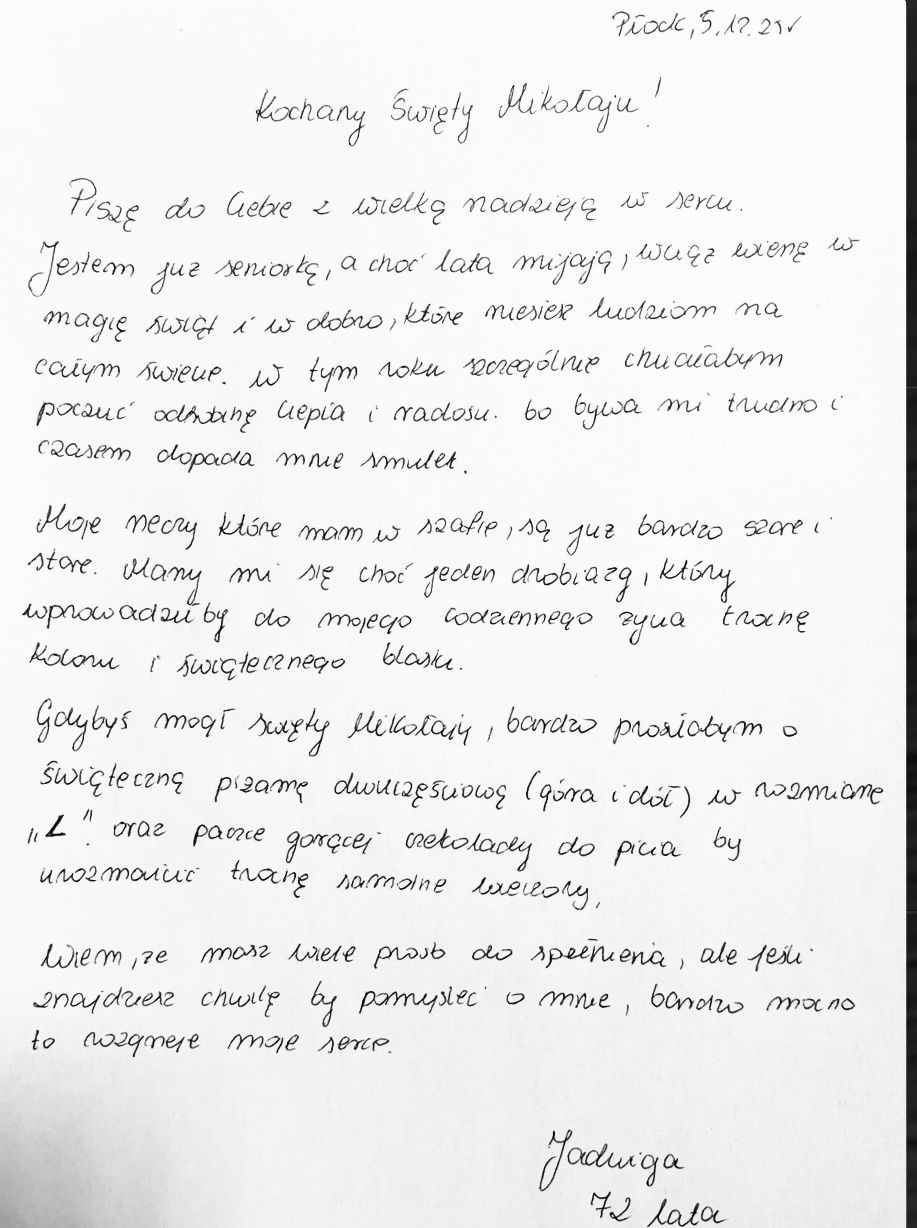 Płock, 5.12.25r
Kochany Święty Mikołaju!
Piszę do Ciebie z wielką nadzieją w sercu.
Jestem już seniorką, a choć lata mijają, wciąż wierzę w
magię świąt i w dobro, które niesiesz ludziom na
całym świecie. W tym roku szczególnie chciałabym
poczuć odrobinę ciepła i radości. bo bywa mi trudno i
czasem dopada mnie smutek.
Moje rzeczy które mam w szafie, są już bardzo szare i
stare. Marzy mi się choć jeden drobiazg, który
wprowadziłby do mojego codziennego życia trochę
koloru i świątecznego blasku.
Gdybyś mógł święty Mikołaju, bardzo prosiłabym o
świąteczną piżamę dwuczęściową (góra i dół) w rozmiarze
„L” oraz paczkę gorącej czekolady do picia by
urozmaicić trochę samotne wieczory,
Wiem, że masz wiele prośb do spełnienia, ale jeśli
znajdziesz chwilę by pomyśleć o mnie, bardzo mocno
to rozgrzeje moje serce.
Jadwiga
72 lata